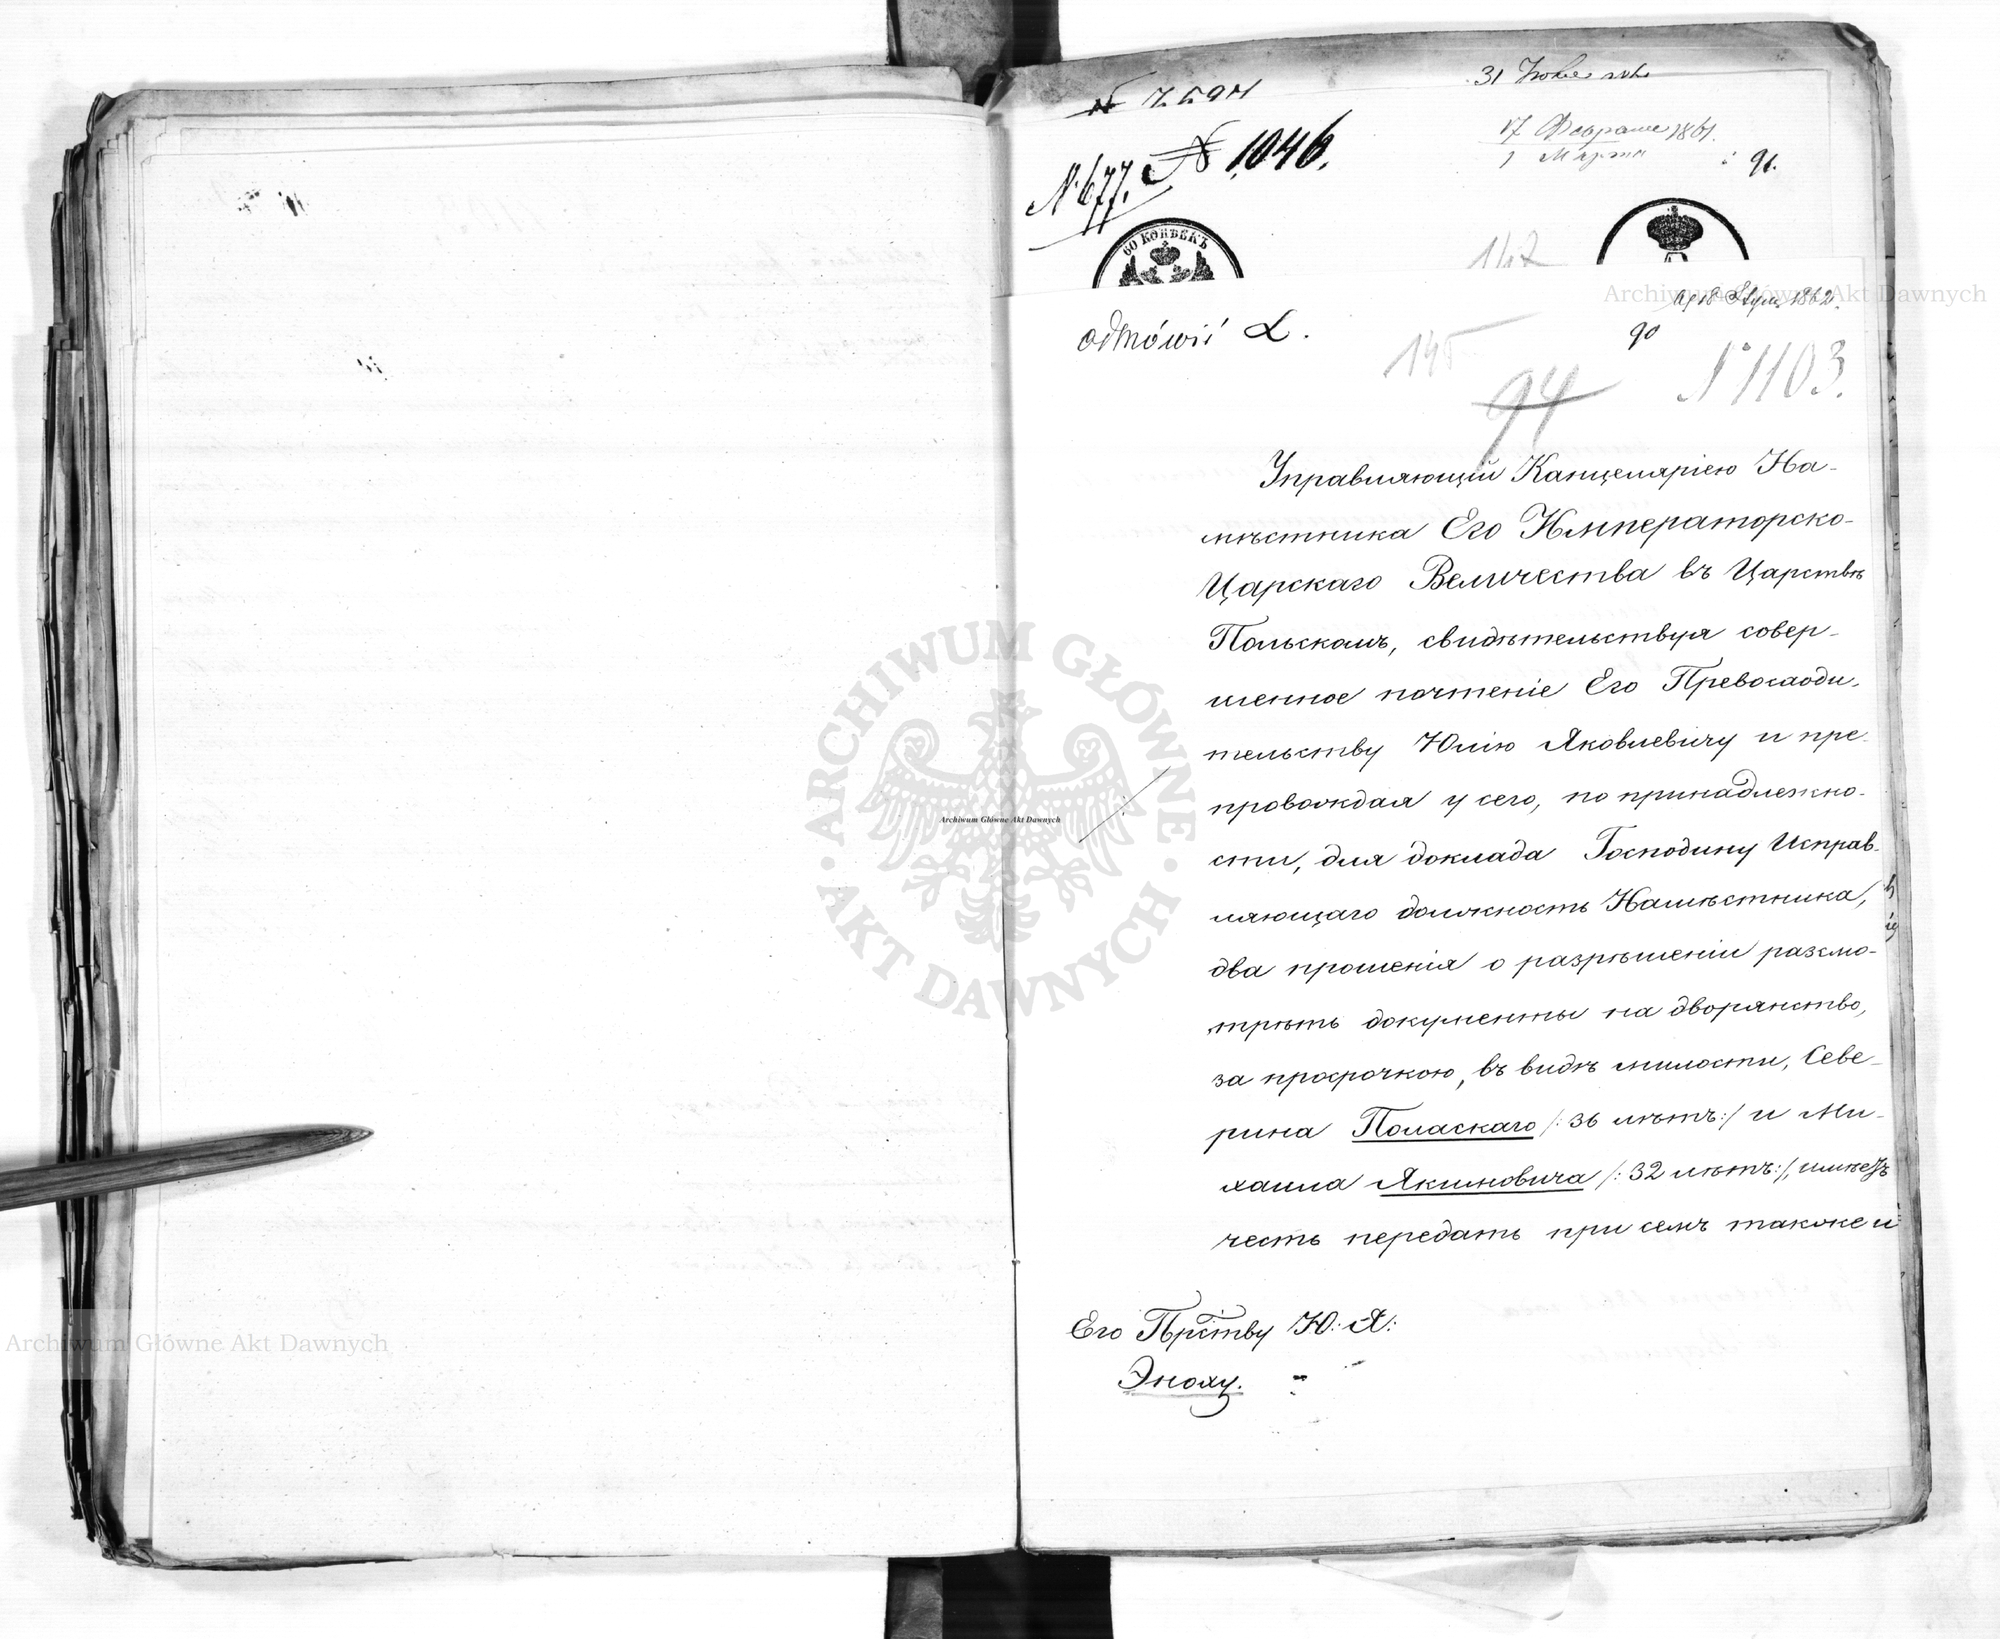 № 1046.
№ 677.
17 Февраля 1861.
1 Марта
91.
60 КОПѢЕКЪ
142
1862.
odmówić
90
145
94
№ 1103.
Управляющій Канцеляріею На-
мѣстника Его Императорско-
Царскаго Величества въ Царствѣ
Польскомъ, свидѣтельствуя совер-
шенное почтеніе Его Превосходи-
тельству Юлію Яковлевичу и пре-
провождая у сего, по принадлежно-
сти, для доклада Господину Исправ-
ляющаго должность Намѣстника,
два прошенія о разрѣшеніи разсмо-
трѣть документы на дворянство,
за просрочкою, въ видѣ милости, Севе-
рина Поласкаго /: 36 лѣтъ :/ и Ми-
хаила Якимовича /: 32 лѣтъ :/, имѣетъ
честь передать при семъ также и
Его Прству Ю: Я:
Эноху.
Archiwum Główne Akt Dawnych
ARCHIWUM GŁÓWNE AKT DAWNYCH
Archiwum Główne Akt Dawnych
Archiwum Główne Akt Dawnych